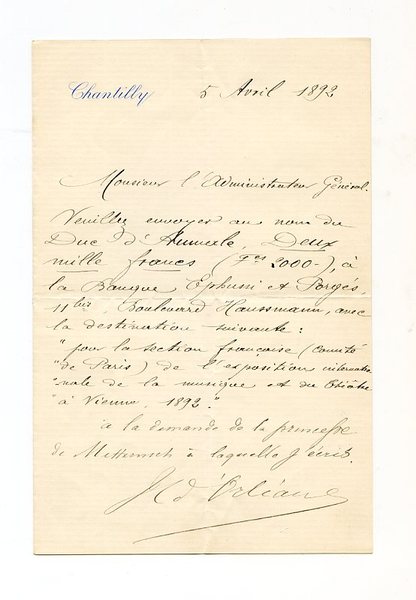 Chantilly 5 Avril 1892
Monsieur l'Administrateur Général.
Veuillez envoyer au nom du
Duc d'Aumale, Deux
mille francs (Frs 2000-), à
la Banque Ephrussi et Porgès,
11bis, Boulevard Haussmann, avec
la destination suivante :
"pour la section française (Comité
"de Paris) de l'exposition internatio
"nale de la musique et du théâtre
"à Vienne, 1892."
à la demande de la princesse
de Metternich à laquelle j'écris.
H d'Orléans